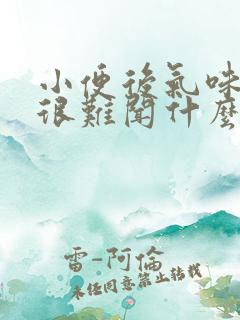 小便後氣味
很難聞什麼
雷-阿倫
未經同意禁止轉載